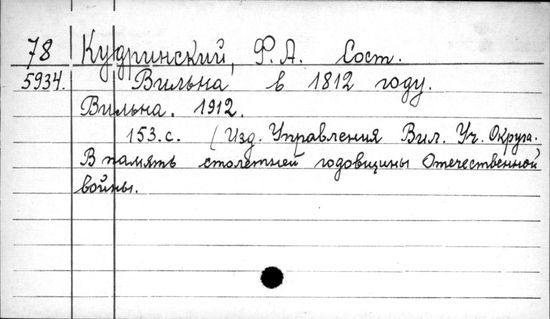 78 Кудринский, Ф. А. Сост.
5934. Вильна в 1812 году.
Вильна. 1912.
153. с. (Изд. Управления Вил. Уч. Округа.
В память столетней годовщины Отечественной
войны.